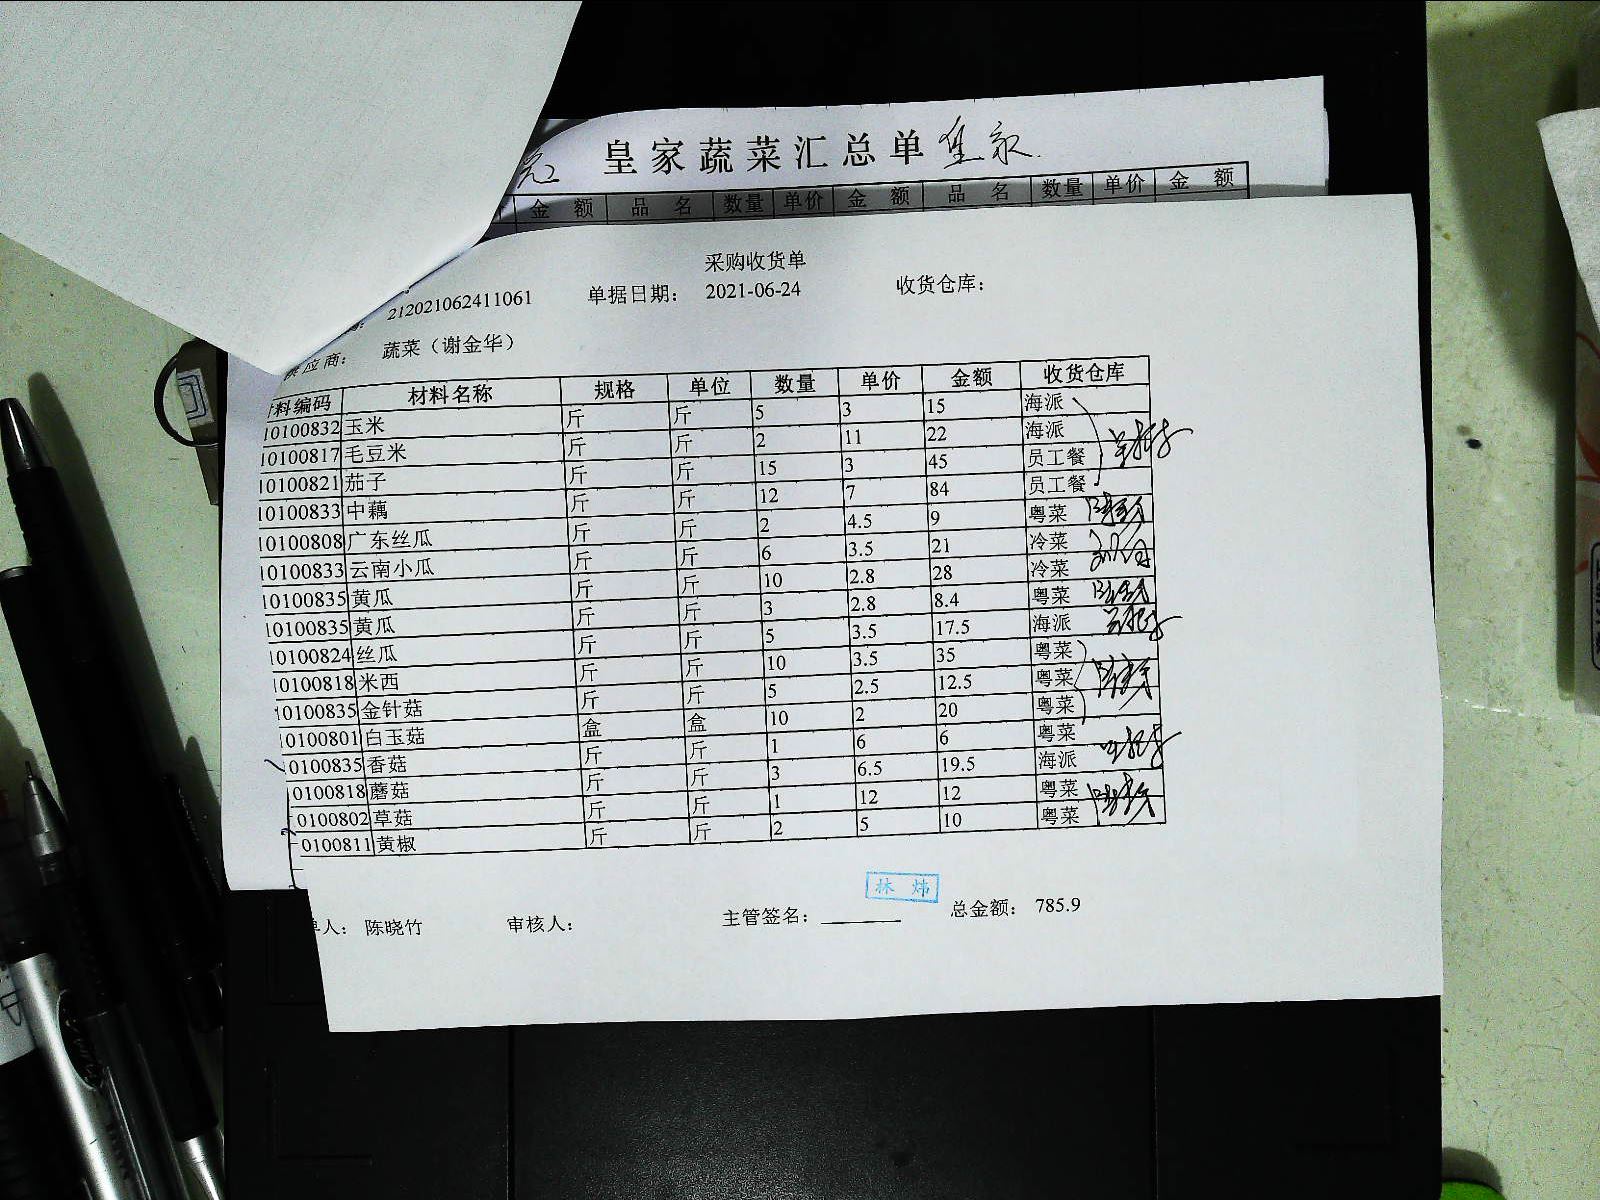 皇家蔬菜汇总单
金 额 品 名 数量 单价 金 额 品 名 数量 单价 金 额
采购收货单
212021062411061 单据日期: 2021-06-24 收货仓库:
应商: 蔬菜(谢金华)
材料编码 材料名称 规格 单位 数量 单价 金额 收货仓库
10100832 玉米 斤 斤 5 3 15 海派
10100817 毛豆米 斤 斤 2 11 22 海派
10100821 茄子 斤 斤 15 3 45 员工餐
10100833 中藕 斤 斤 12 7 84 员工餐
10100808 广东丝瓜 斤 斤 2 4.5 9 粤菜
10100833 云南小瓜 斤 斤 6 3.5 21 冷菜
10100835 黄瓜 斤 斤 10 2.8 28 冷菜
10100835 黄瓜 斤 斤 3 2.8 8.4 粤菜
10100824 丝瓜 斤 斤 5 3.5 17.5 海派
10100818 米西 斤 斤 10 3.5 35 粤菜
10100835 金针菇 斤 斤 5 2.5 12.5 粤菜
10100801 白玉菇 盒 盒 10 2 20 粤菜
0100835 香菇 斤 斤 1 6 6 粤菜
0100818 蘑菇 斤 斤 3 6.5 19.5 海派
0100802 草菇 斤 斤 1 12 12 粤菜
0100811 黄椒 斤 斤 2 5 10 粤菜
林 炜
单人: 陈晓竹 审核人: 主管签名: 总金额: 785.9